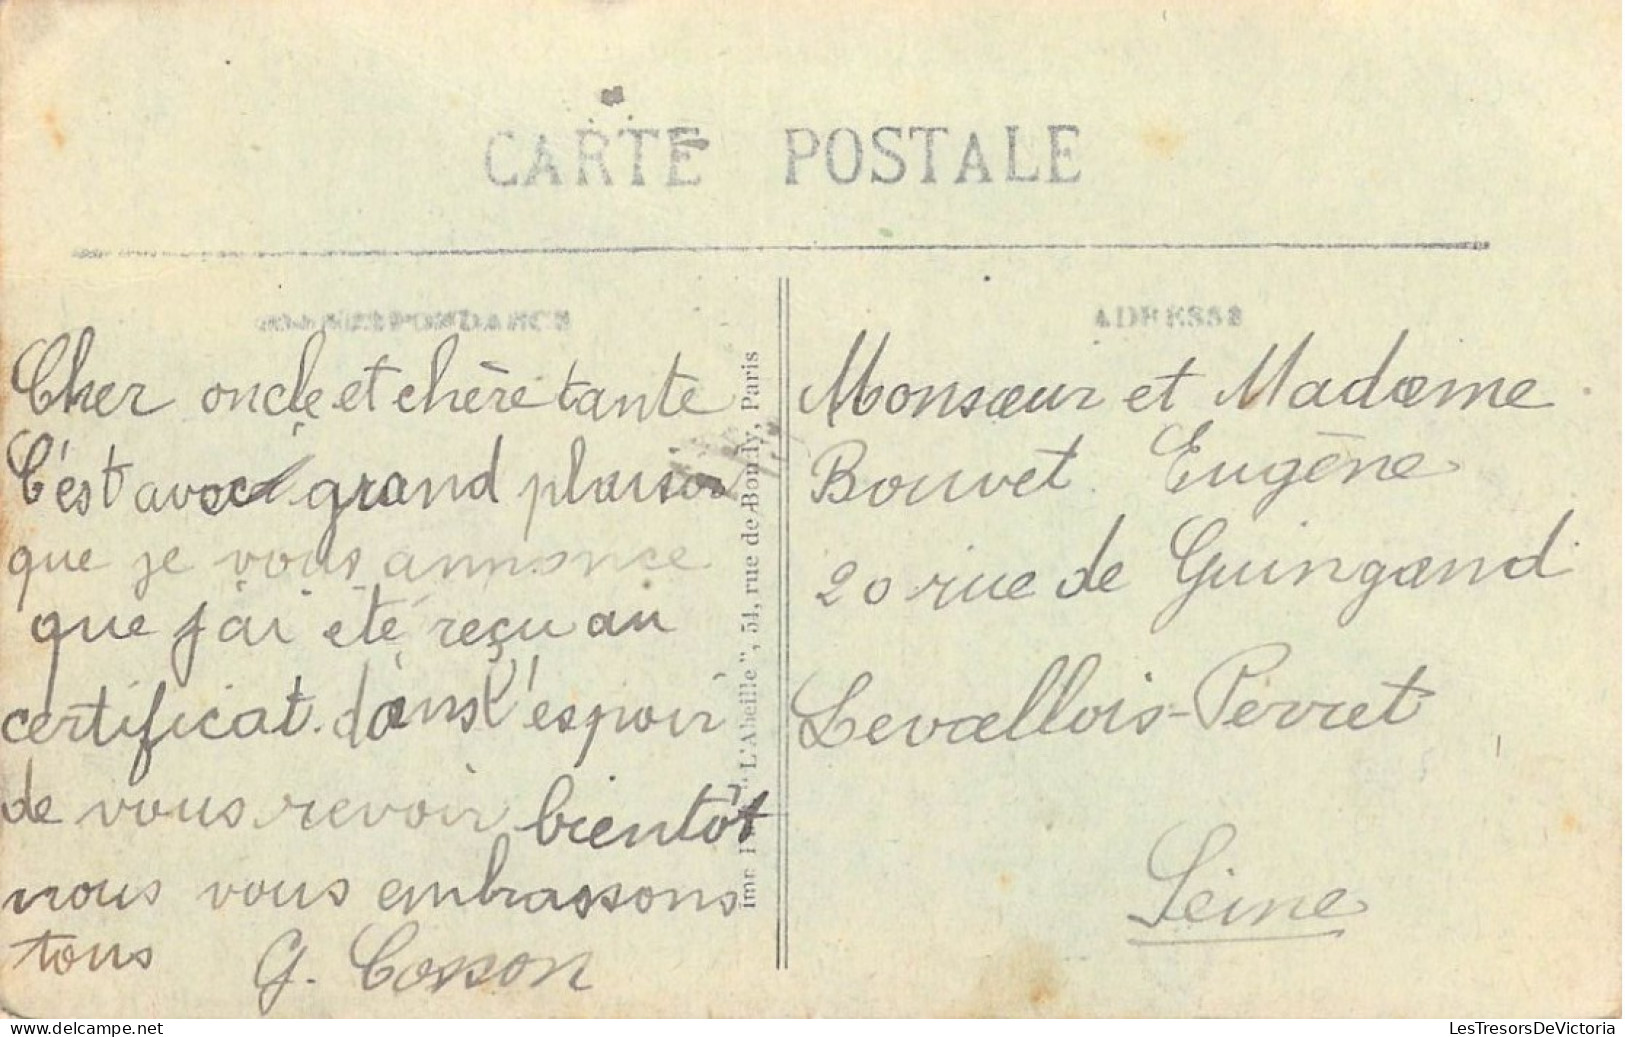 CARTE POSTALE
CORRESPONDANCE
Cher oncle et chère tante
C'est avec grand plaisir
que je vous annonce
que j'ai été reçu au
certificat. dans l'espoir
de vous revoir bientôt
nous vous embrassons
tous G. Cosson
"L'Abeille", 51, rue de Bondy, Paris
ADRESSE
Monsieur et Madame
Bouvet Eugène
20 rue de Guingand
Levallois-Perret
Seine
delcampe.net
LesTresorsDeVictoria